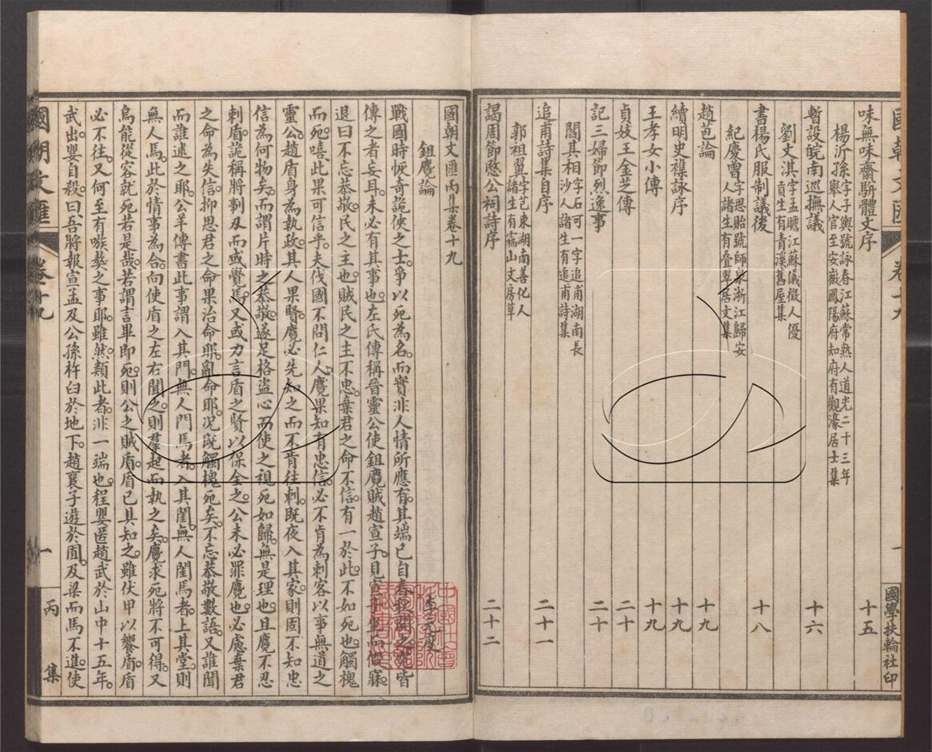 國朝文匯 卷十九 一 國學扶輪社印
味無味齋駢體文序 十五
楊沂孫 字子輿號詠春江蘇常熟人道光二十三年
舉人官至安徽鳳陽府知府有觀濠居士集
暫設皖南巡撫議 十六
劉文淇 字孟瞻江蘇儀徵人優
貢生有青溪舊屋集
書楊氏服制議後 十八
紀慶曾 字思詒號師泉浙江歸安
人諸生有疊翠居文集
趙苞論 十九
續明史襍詠序 十九
王孝女小傳 十九
貞妓王金芝傳 二十
記三婦節烈逸事 二十
閻其相 字石可一字追甫湖南長
沙人諸生有追甫詩集
追甫詩集自序 二十一
郭祖翼 字艺東湖南善化人
諸生有靄山文房草
謁周節愍公祠詩序 二十二
國朝文匯丙集卷十九
鉏麑論 李元度
戰國時恢奇詭俠之士爭以死為名而實非人情所應有其端已自春秋開之然皆
傳之者妄耳未必有其事也左氏傳稱晉靈公使鉏麑賊趙宣子見宣子盛服假寐
退曰不忘恭敬民之主也賊民之主不忠棄君之命不信有一於此不如死也觸槐
而死嘻此果可信乎夫伐國不問仁人麑果知有忠信必不肯為刺客以事無道之
靈公趙盾身為執政其人果賢麑必先知之而不肯往刺既夜入其家則固不知忠
信為何物矣而謂片時之恭敬遂足格盜心而使之視死如歸無是理也且麑不忍
刺盾詭稱將事及而或覺焉又或力言盾之賢以保全之公未必罪麑也必慮棄君
之命為失信抑思君之命果治命耶亂命耶況既觸槐死矣不忘恭敬數語又誰聞
而誰述之耶公羊傳書此事謂入其門無人門焉者入其閨無人閨焉者上其堂則
無人焉此於情事為合向使盾之左右聞之則羣起而執之矣麑求死將不可得又
烏能從容就死若是哉若謂言畢即死則公之賊盾盾已具知之雖伏甲以饗盾盾
必不往又何至有嗾獒之事耶雖然類此者非一端也程嬰匿趙武於山中十五年
武出嬰自殺曰吾將報宣孟及公孫杵臼於地下趙襄子遊於囿及梁而馬不進使
國朝文匯 卷十九 一 丙集